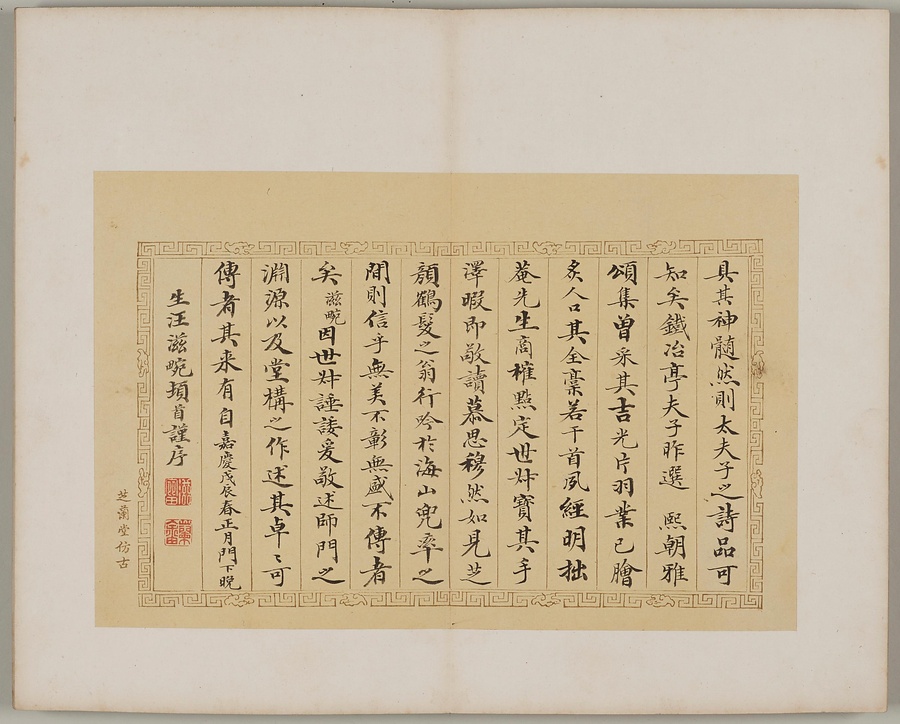 具其神髓然則太夫子之詩品可
知矣鐵冶亭夫子昨選 熙朝雅
頌集曾采其吉光片羽業已膾
炙人口其全稾若干首夙經明拙
菴先生商榷點定世好寶其手
澤暇即敬讀慕思穆然如見芝
顏鶴髮之翁行吟於海山兜率之
間則信乎無美不彰無盛不傳者
矣滋畹因世好諈諉爰敬述師門之
淵源以及堂構之作述其卓〻可
傳者其来有自嘉慶戊辰春正月門下晚
生汪滋畹頓首謹序
芝蘭堂仿古